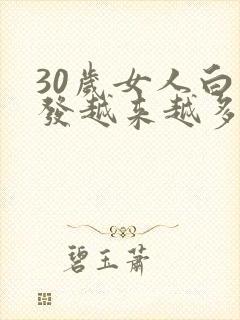 30歲女人白
發越来越多
碧玉蕭